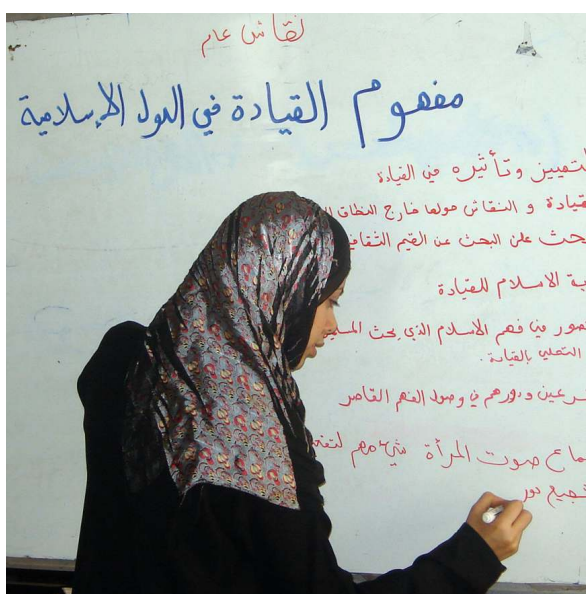 نقاش عام
مفهوم القيادة في الدول الإسلامية
لتمييز وتأثيره في القيادة
قيادة و النقاش حولها خارج النطاق
حث على البحث عن القيم الثقافي
ية الاسلام للقيادة
صور في فهم الاسلام الذي يحث المسلم
التحلي بالقيادة.
سرعين ودورهم في وصول الفهم القاصر
ماع صوت المرأة شيء مهم لتفع
شجيع دور